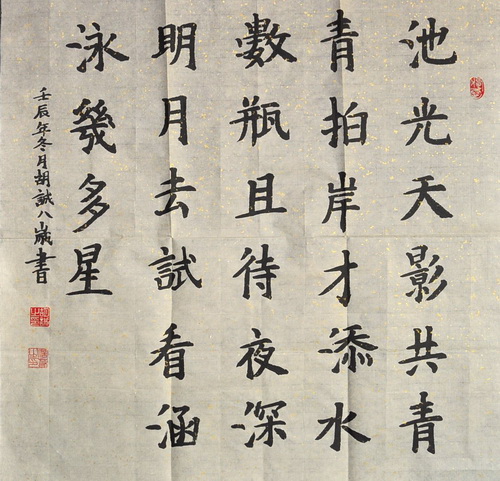 池光天影共青
青拍岸才添水
數瓶且待夜深
明月去試看涵
泳幾多星
壬辰年冬月胡誠八歲書